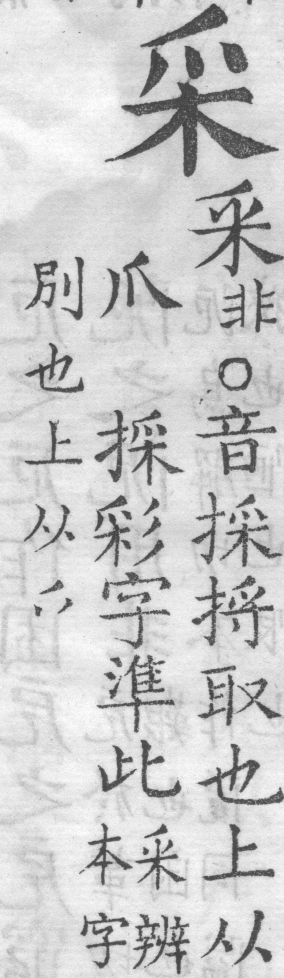 采
釆非○音採捋取也上从
爪 採彩字準此釆辨
本字
別也上从